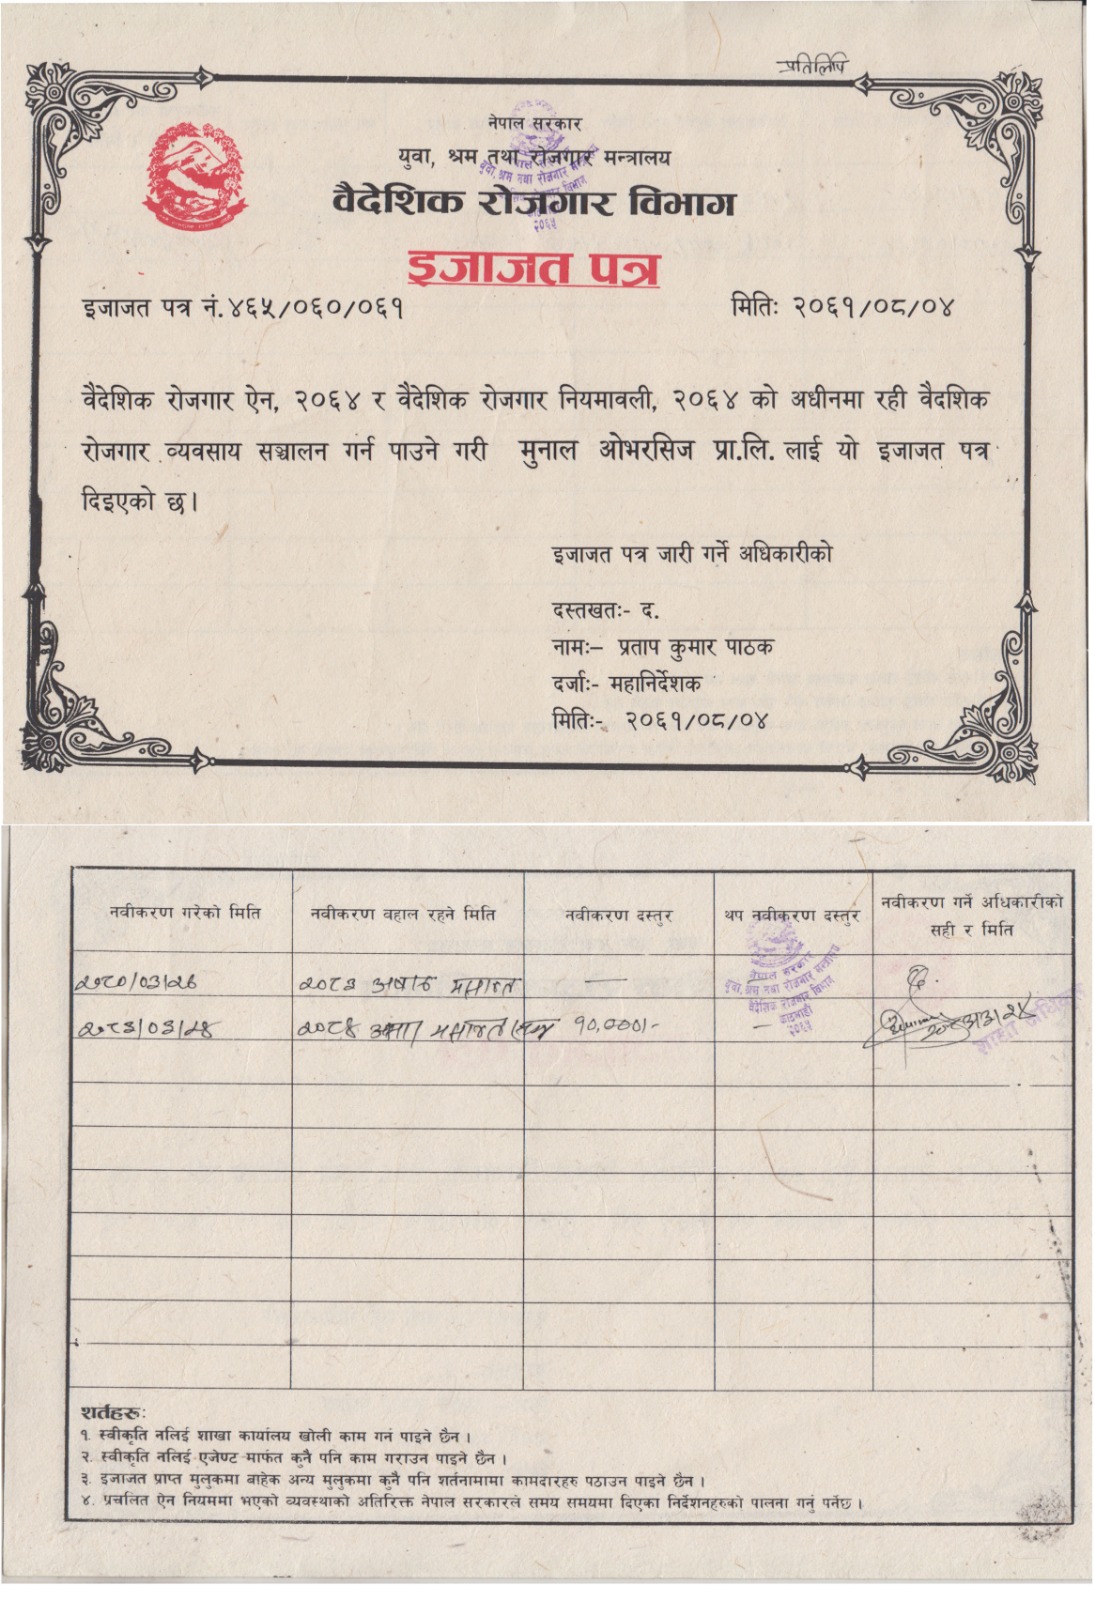 प्रतिलिपि
नेपाल सरकार
युवा, श्रम तथा रोजगार मन्त्रालय
वैदेशिक रोजगार विभाग
इजाजत पत्र
इजाजत पत्र नं.४६५/०६०/०६१ मितिः २०६१/०८/०४
वैदेशिक रोजगार ऐन, २०६४ र वैदेशिक रोजगार नियमावली, २०६४ को अधीनमा रही वैदशिक
रोजगार व्यवसाय सञ्चालन गर्न पाउने गरी मुनाल ओभरसिज प्रा.लि. लाई यो इजाजत पत्र
दिइएको छ।
इजाजत पत्र जारी गर्ने अधिकारीको
दस्तखतः- द.
नामः– प्रताप कुमार पाठक
दर्जाः- महानिर्देशक
मितिः- २०६१/०८/०४
नवीकरण गरेको मिति नवीकरण वहाल रहने मिति नवीकरण दस्तुर थप नवीकरण दस्तुर नवीकरण गर्ने अधिकारीको
सही र मिति
नेपाल सरकार
युवा, श्रम तथा रोजगार मन्त्रालय
वैदेशिक रोजगार विभाग
काठमाडौं
२०६५
२०८०/०३/२६ २०८३ अषाढ मसान्त — द.
२०८३/०३/२४ २०८४ मसान्त १०,०००/- —
शाखा अधिकृत
शर्तहरुः
१. स्वीकृति नलिई शाखा कार्यालय खोली काम गर्न पाइने छैन ।
२. स्वीकृति नलिई एजेण्ट मार्फत कुनै पनि काम गराउन पाइने छैन ।
३. इजाजत प्राप्त मुलुकमा बाहेक अन्य मुलुकमा कुनै पनि शर्तनामामा कामदारहरु पठाउन पाइने छैन ।
४. प्रचलित ऐन नियममा भएको व्यवस्थाको अतिरिक्त नेपाल सरकारले समय समयमा दिएका निर्देशनहरुको पालना गर्नु पर्नेछ ।